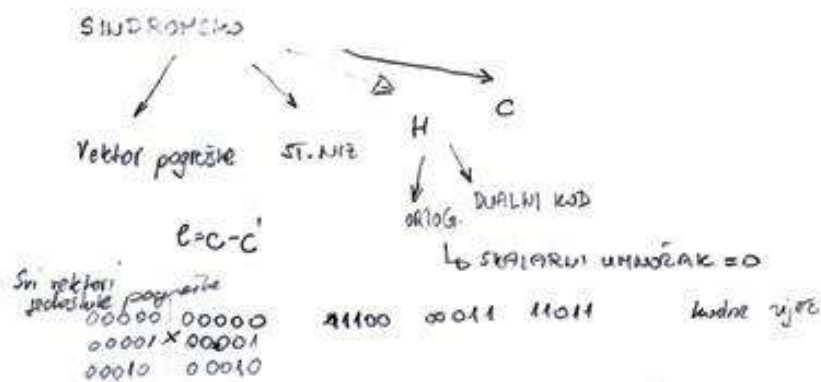 SINDROMSKO
Vektor pogreške ST. NIZ H C
ORTOG. DUALNI KOD
e=c-c'
↳ SKALARNI UMNOŽAK =0
Svi vektori
jednostruke pogreške
00000 00000 11100 00011 11011 kodne riječ
00001 x 00001
00010 00010